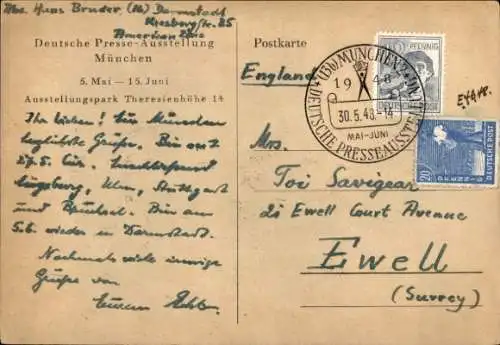 Abs. Hans Bruder, (16) Darmstadt
Riesbergstr. 85
American Zone
Deutsche Presse-Ausstellung
München
5. Mai — 15. Juni
Ausstellungspark Theresienhöhe 14
Ihr Lieben! Aus München
herzlichste Grüße. Bin seit
27.5. hier. Anschließend
Augsburg, Ulm, Stuttgart
und Bruchsal. Bin am
5.6. wieder in Darmstadt.
Nochmals viele innige
Grüße von
Postkarte
England
(13b) MÜNCHEN 2
1948
30.5.48.-14
MAI-JUNI
DEUTSCHE PRESSEAUSSTELLUNG
PFENNIG
DEUTSCHE POST
20
PFENNIG
DEUTSCHE POST
Mrs.
Toi Savigear
21 Ewell Court Avenue
Ewell
(Surrey)